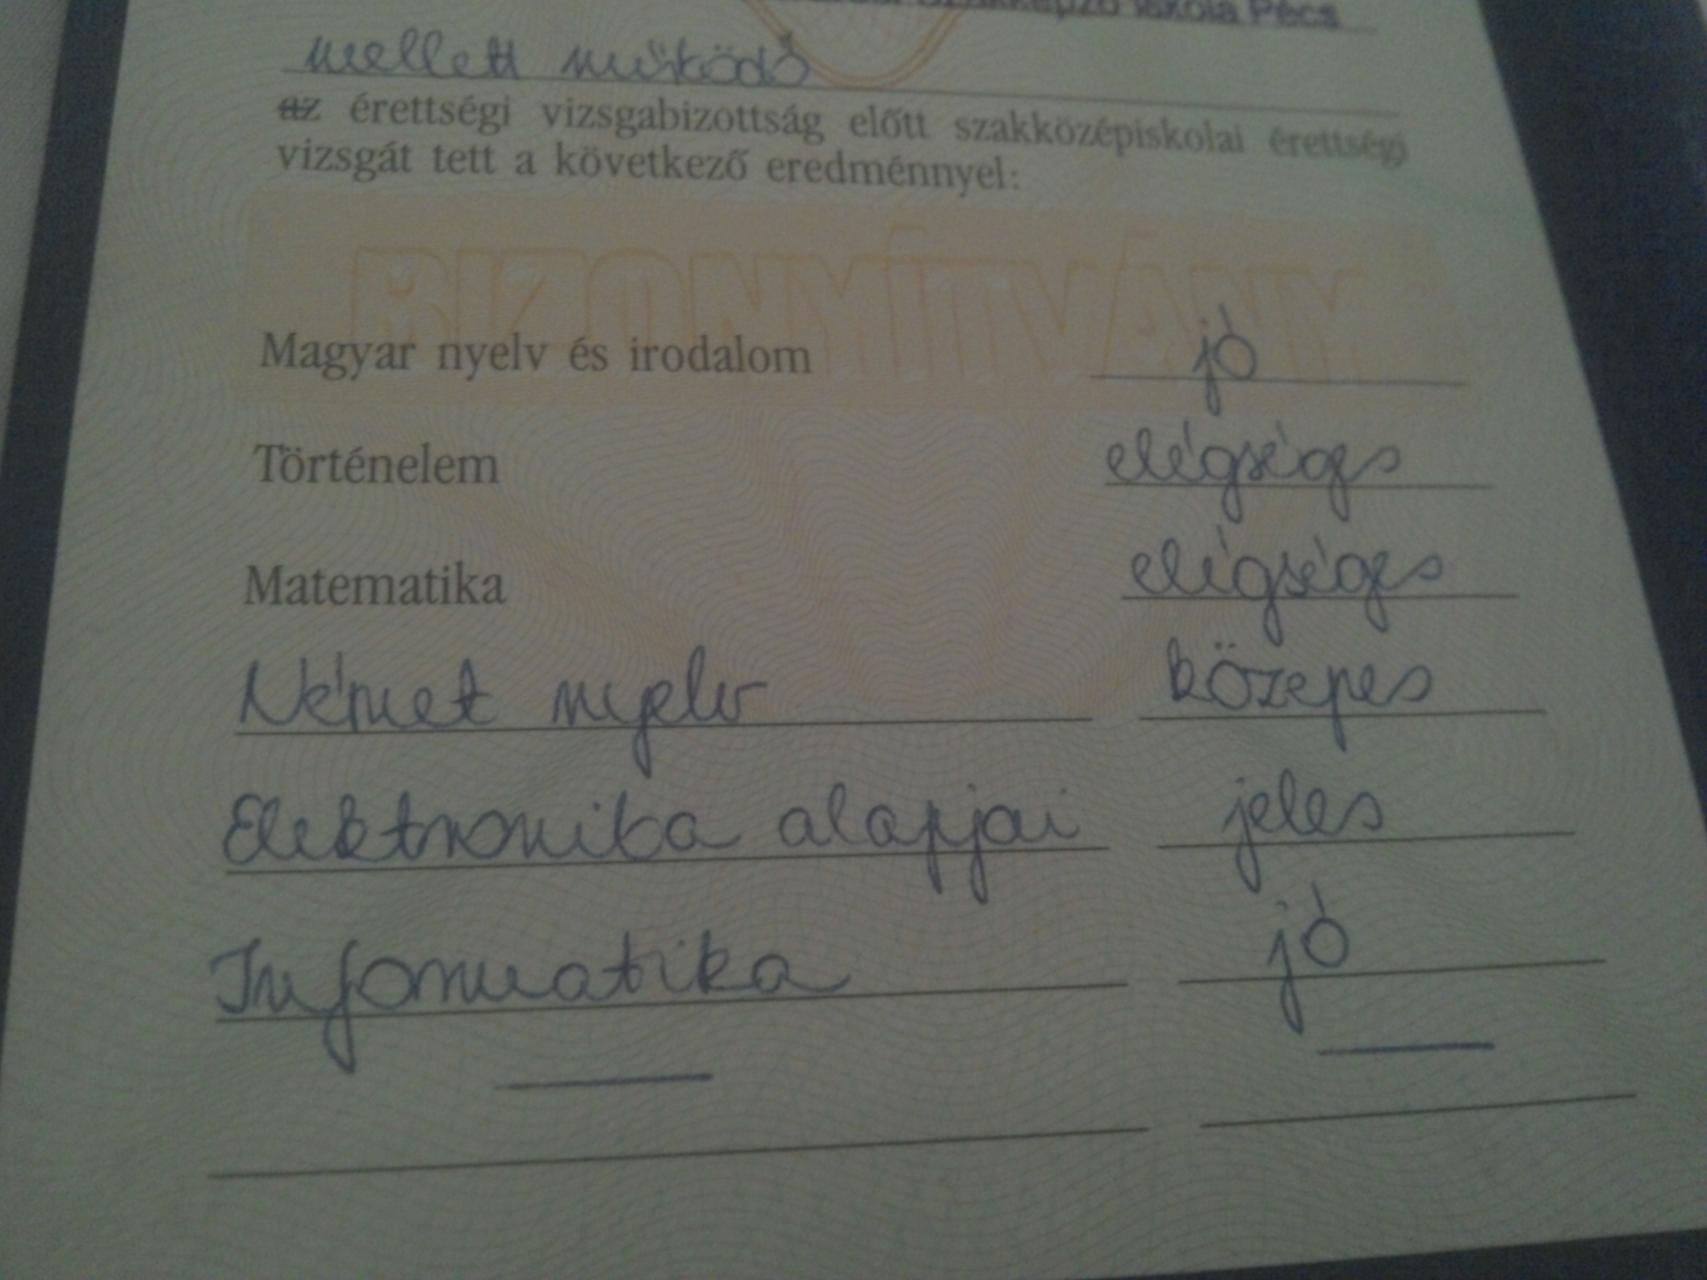 Szakképző Iskola Pécs
mellett működő
az érettségi vizsgabizottság előtt szakközépiskolai érettségi
vizsgát tett a következő eredménnyel:
BIZONYÍTVÁNY
Magyar nyelv és irodalom jó
Történelem elégséges
Matematika elégséges
Német nyelv közepes
Elektronika alapjai jeles
Informatika jó